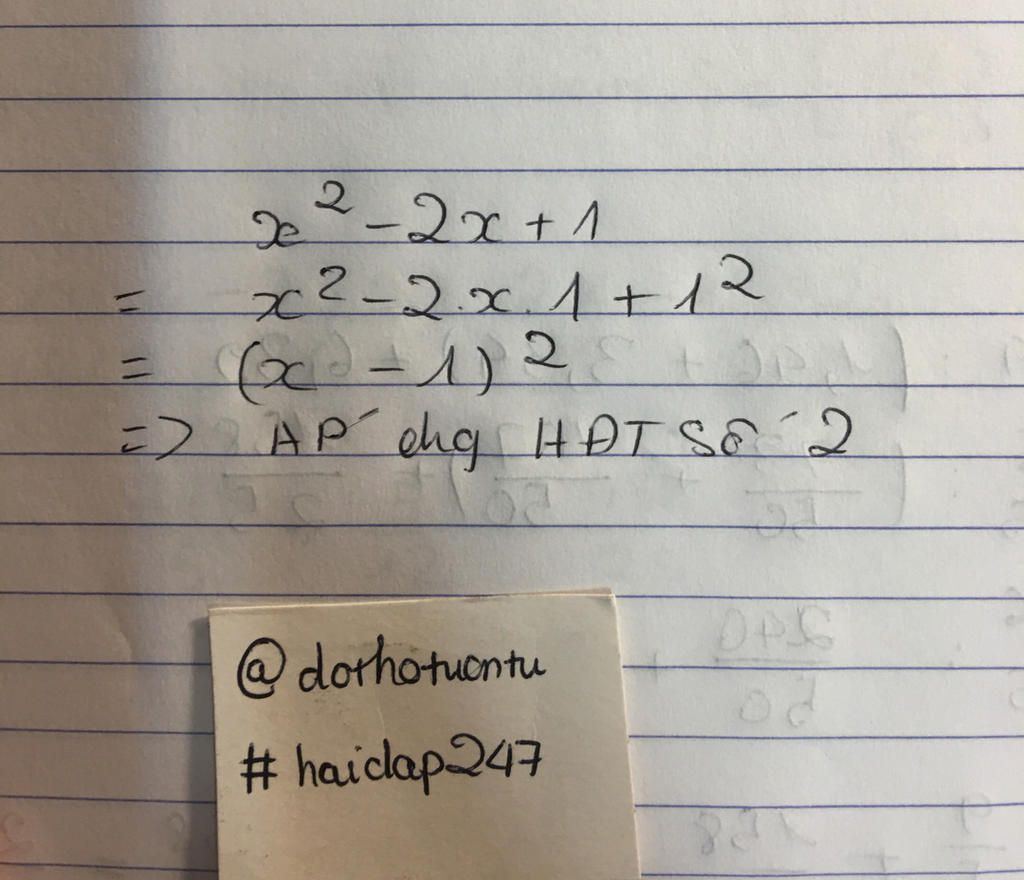 x² - 2x + 1
= x² - 2.x.1 + 1²
= (x - 1)²
=> ÁP dhg HĐT SỐ 2
@dothotuontu
#haiclap247